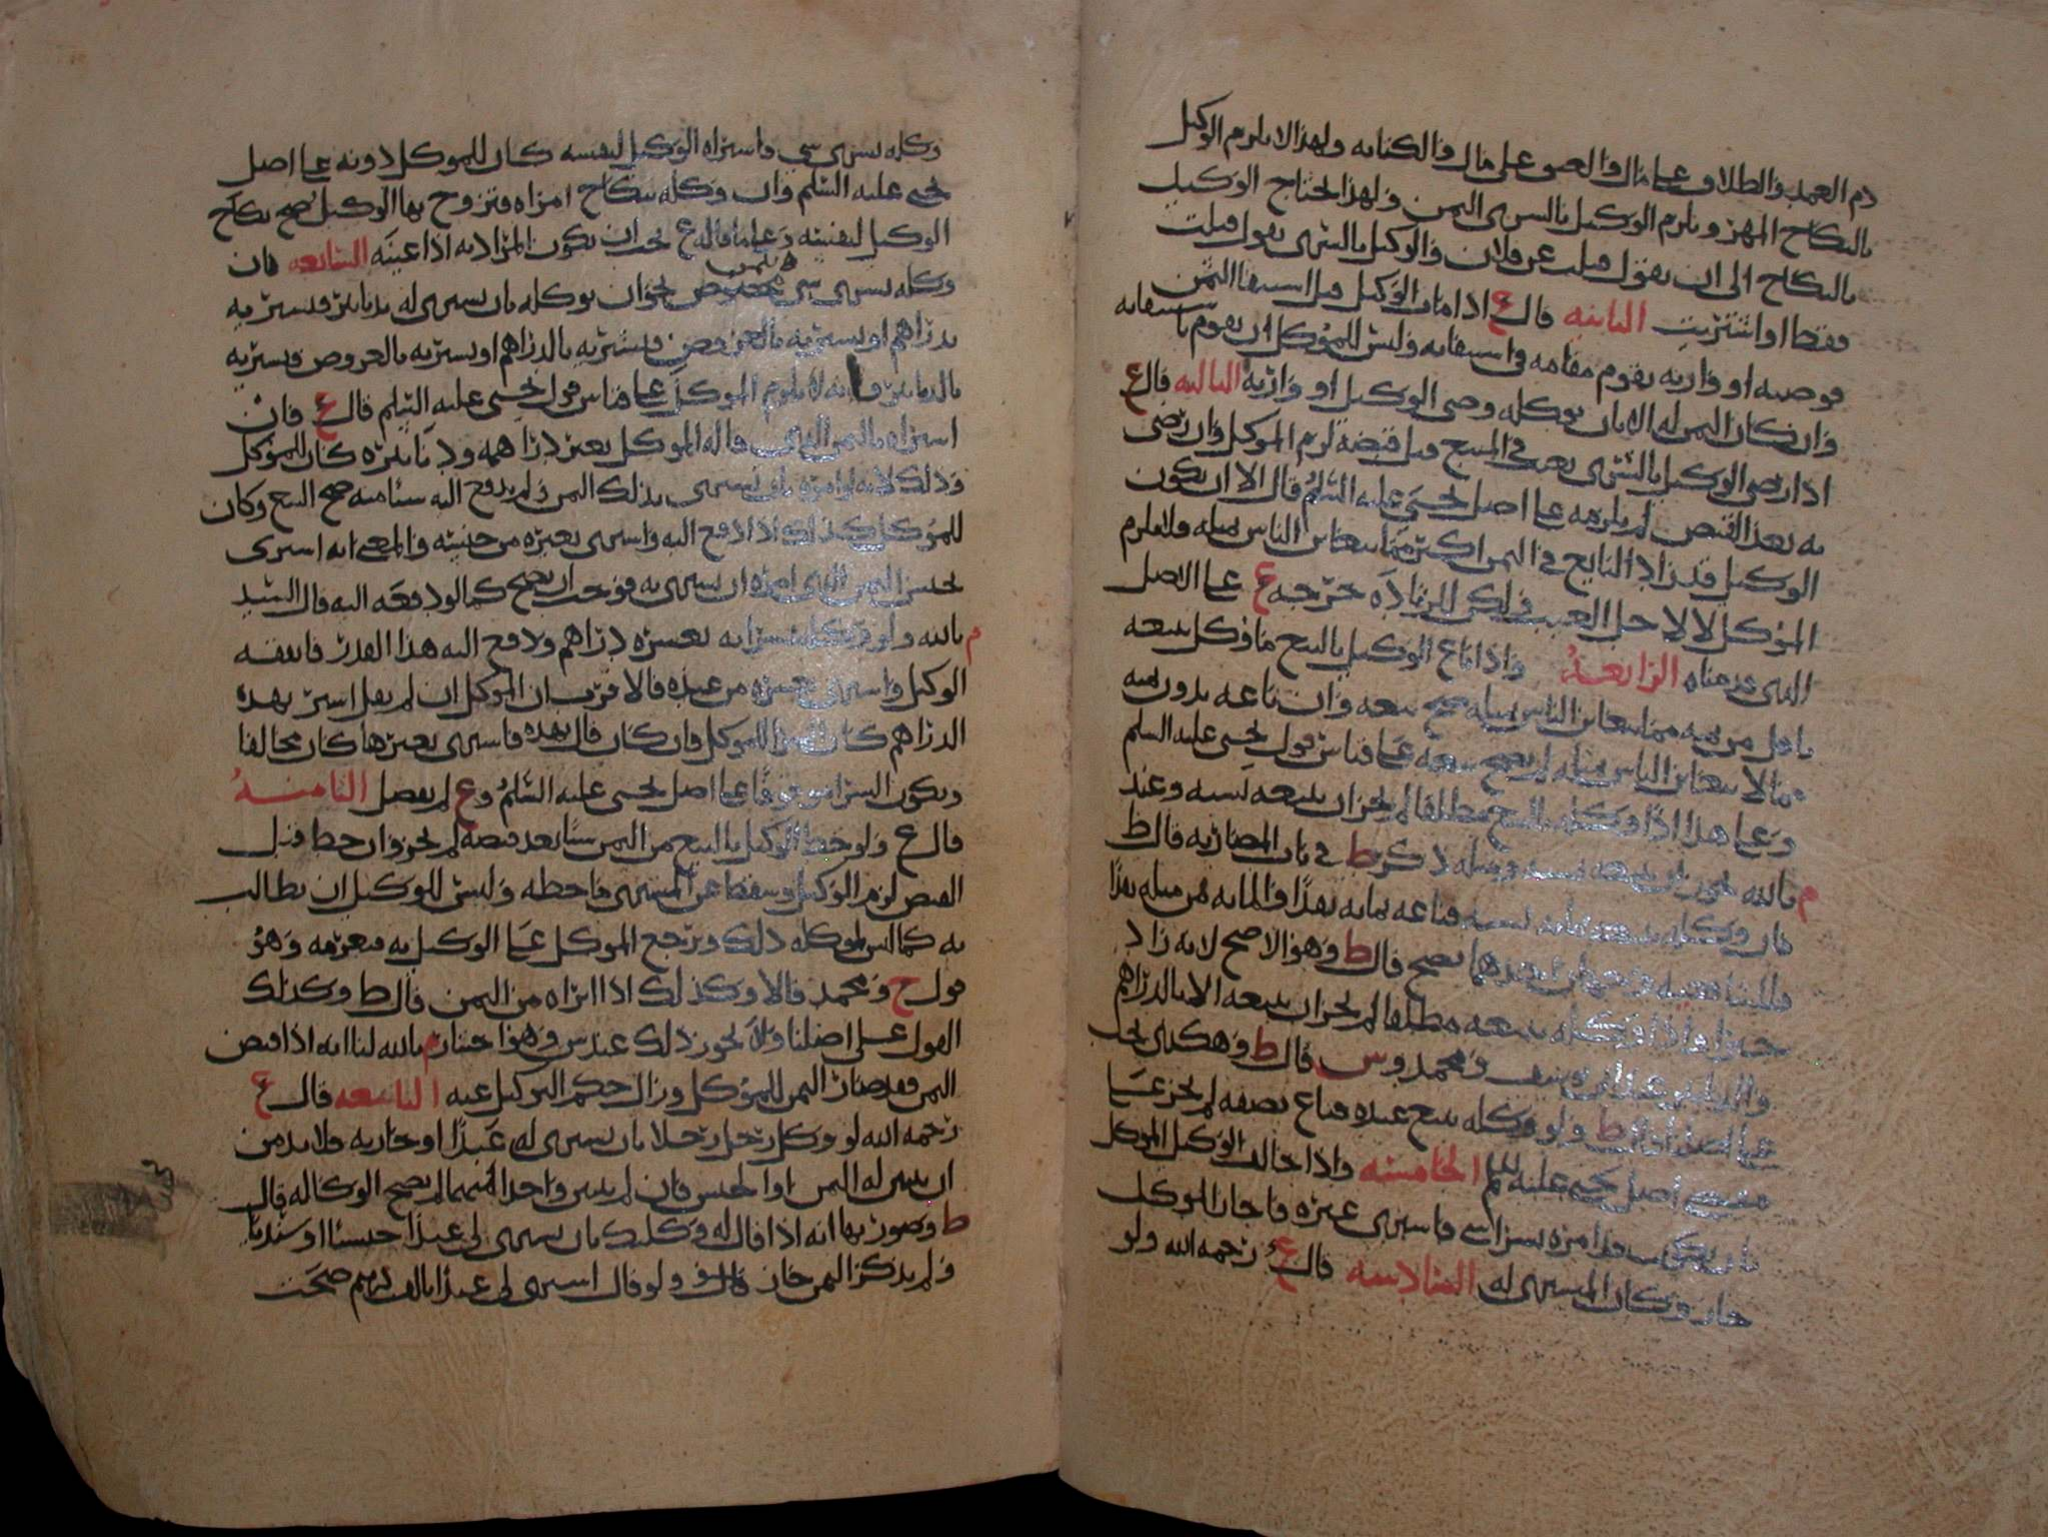 دم العمد والطلاق على مال والعتق على مال والكتابه ولهذا لا يلزم الوكيل
بالنكاح المهر ويلزم الوكيل بالشرى الثمن ولهذا يحتاج الوكيل
بالنكاح الى ان يقول قبلت عن فلان والوكيل بالشرى يقول قبلت
فقط او اشتريت الثانيه قال ع اذا مات الوكيل قبل استيفا الثمن
فوصيه او وارثه يقوم مقامه في استيفايه وليس للموكل ان يقوم باستيفايه
وان كان الثمن له الا بان يوكله وصي الوكيل او وارثه الثالثه قال ع
اذا رضي الوكيل بالشرى بعيب في المبيع قبل قبضه لزم الموكل وان رضي
به بعد القبض لم يلزمه على اصل يحيى عليه السلم قال الا ان يكون
الوكيل قد زاد البايع في الثمن اكثر مما يتغابن الناس بمثله فلا يلزم
الموكل لا لاجل العيب ولكن للزياده خرجه ع على الاصل
الذي قدمناه الرابعه واذا باع الوكيل بالبيع ما وكل ببيعه
باقل من ثمنه مما يتغابن الناس بمثله صح بيعه وان باعه بدون ثمنه
مما لا يتغابن الناس بمثله لم يصح بيعه على قياس قول يحيى عليه السلم
وعلى هذا اذا وكله بالبيع مطلقا لم يجز ان يبيعه نسيه وعند
م بالله يجوز ان يبيعه نسيه ومثله ذكر ط في باب المضاربه قال ط
فان وكله ببيعه بمايه نسيه فباعه بمايه نقدا والمايه هي مثله نقدا
فللناصريه وجهان احدهما يصح قال ط وهو الاصح لانه زاد
خيرا واذا وكله ببيعه مطلقا لم يجز ان يبيعه الا بالدراهم
والدنانير عند ابي يوسف ومحمد وس قال ط وهكذى يجب
على اصلنا قال ط ولو وكله ببيع عبده فباع نصفه لم يجز على
مقتضى اصل يحيى عليه السلم الخامسه واذا خالف الوكيل الموكل
بان يكون قد امره بشرا شي فاشترى غيره فاجاز الموكل
جاز وكان المشترى له السادسه قال ع رحمه الله ولو
وكله بشرى شي فاشتراه الوكيل لنفسه كان للموكل دونه على اصل
يحيى عليه السلم وان وكله بنكاح امراه فتزوج بها الوكيل صح نكاح
الوكيل لنفسه وعلى ما قاله ع يجب ان يكون المراد به اذا عينه السابعه فان
وكله بشرى شي بثمن مخصوص نحو ان يوكله بان يشترى له بدنانير فيشتريه
بدراهم او يشتريه بالعروض فيشتريه بالدراهم او يشتريه بالدراهم فيشتريه
بالدنانير فانه لا يلزم الموكل على قياس قول يحيى عليه السلم قال ع فان
اشتراه بالثمن الذي قاله الموكل بغير دراهمه ودنانيره كان للموكل
وذلك لانه لو امره بان يشترى بذلك الثمن ولم يدفع اليه شيئا منه صح البيع وكان
للموكل كذلك اذا دفع اليه واشترى بغيره من جنسه والمعنى انه اشترى
بجنس الثمن الذي امره ان يشترى به فوجب ان يصح كما لو دفعه اليه قال السيد
م بالله ولو وكله بشرايه بعشره دراهم ودفع اليه هذا القدر فانفقه
الوكيل واشترى بعشره من عنده فالاقرب ان الموكل ان لم يقل اشتر بهذه
الدراهم كان الشرا للموكل فان كان قال بهذه فاشترى بغيرها كان مخالفا
ويكون الشرا موقوفا على اصل يحيى عليه السلم وع لم يفصل الثامنه
قال ع ولو حط الوكيل بالبيع من الثمن شيا بعد قبضه لم يجز وان حط قبل
القبض لزم الوكيل وسقط عن المشترى ما حطه وليس للوكيل ان يطالب
به كما ليس لموكله ذلك ويرجع الموكل على الوكيل به فيغرمه وهو
قول ح ومحمد قالا وكذلك اذا ابراه من الثمن قال ط وكذلك
القول على اصلنا ولا يجوز ذلك عند س وهو اختيار م بالله لنا انه اذا قبض
الثمن فقد صار الثمن للموكل وزال حكم التوكيل عنه التاسعه قال ع
رحمه الله لو وكل رجل رجلا بان يشترى له عبدا او جاريه فلا بد من
ان يبين له الثمن او الجنس فان لم يبين واحدا منهما لم يصح الوكاله قال
ط وصورتها انه اذا قال له وكلتك بان تشترى لي عبدا حبشيا او سنديا
ولم يذكر الثمن جاز ذلك ولو قال اشترى لي عبدا بالف درهم صحت